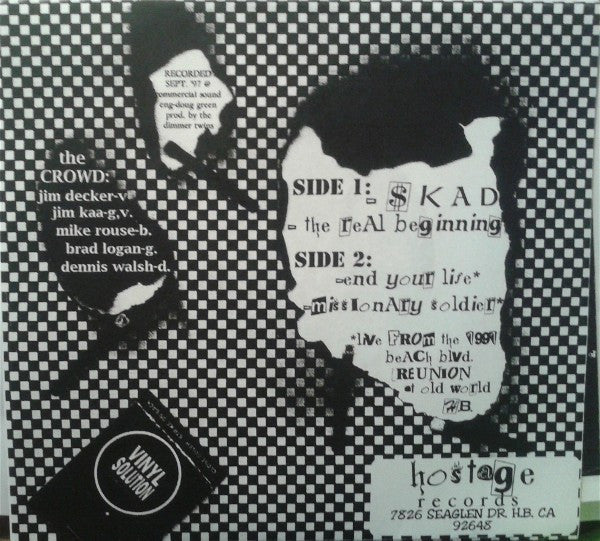 RECORDED
SEPT. '97 @
commercial sound
eng-doug green
prod. by the
dimmer twins
the
CROWD:
jim decker-v
jim kaa-g,v.
mike rouse-b.
brad logan-g.
dennis walsh-d.
SIDE 1:
- $KAD
- the reAl beginning
SIDE 2:
-end your life*
-missIonAry soldier*
*live FROM the 1991
beAch blvd.
REUNION
at old world
HB.
VINYL
SOLUTION
hostage
records
7826 SEAGLEN DR. H.B. CA
92648